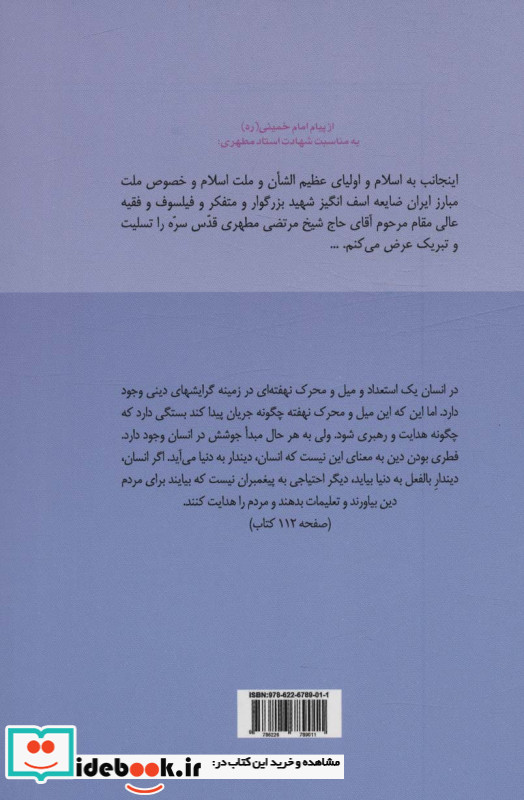 از پیام امام خمینی(ره)
به مناسبت شهادت استاد مطهری:
اینجانب به اسلام و اولیای عظیم الشأن و ملت اسلام و خصوص ملت
مبارز ایران ضایعه اسف انگیز شهید بزرگوار و متفکر و فیلسوف و فقیه
عالی مقام مرحوم آقای حاج شیخ مرتضی مطهری قدّس سرّه را تسلیت
و تبریک عرض می‌کنم. ...
در انسان یک استعداد و میل و محرک نهفته‌ای در زمینه گرایشهای دینی وجود
دارد. اما این که این میل و محرک نهفته چگونه جریان پیدا کند بستگی دارد که
چگونه هدایت و رهبری شود. ولی به هر حال مبدأ جوشش در انسان وجود دارد.
فطری بودن دین به معنای این نیست که انسان، دیندار به دنیا می‌آید. اگر انسان،
دیندارِ بالفعل به دنیا بیاید، دیگر احتیاجی به پیغمبران نیست که بیایند برای مردم
دین بیاورند و تعلیمات بدهند و مردم را هدایت کنند.
(صفحه ۱۱۲ کتاب)
ISBN: 978-622-6789-01-1
9 786226 789011
مشاهده و خرید این کتاب در:
idebook.ir